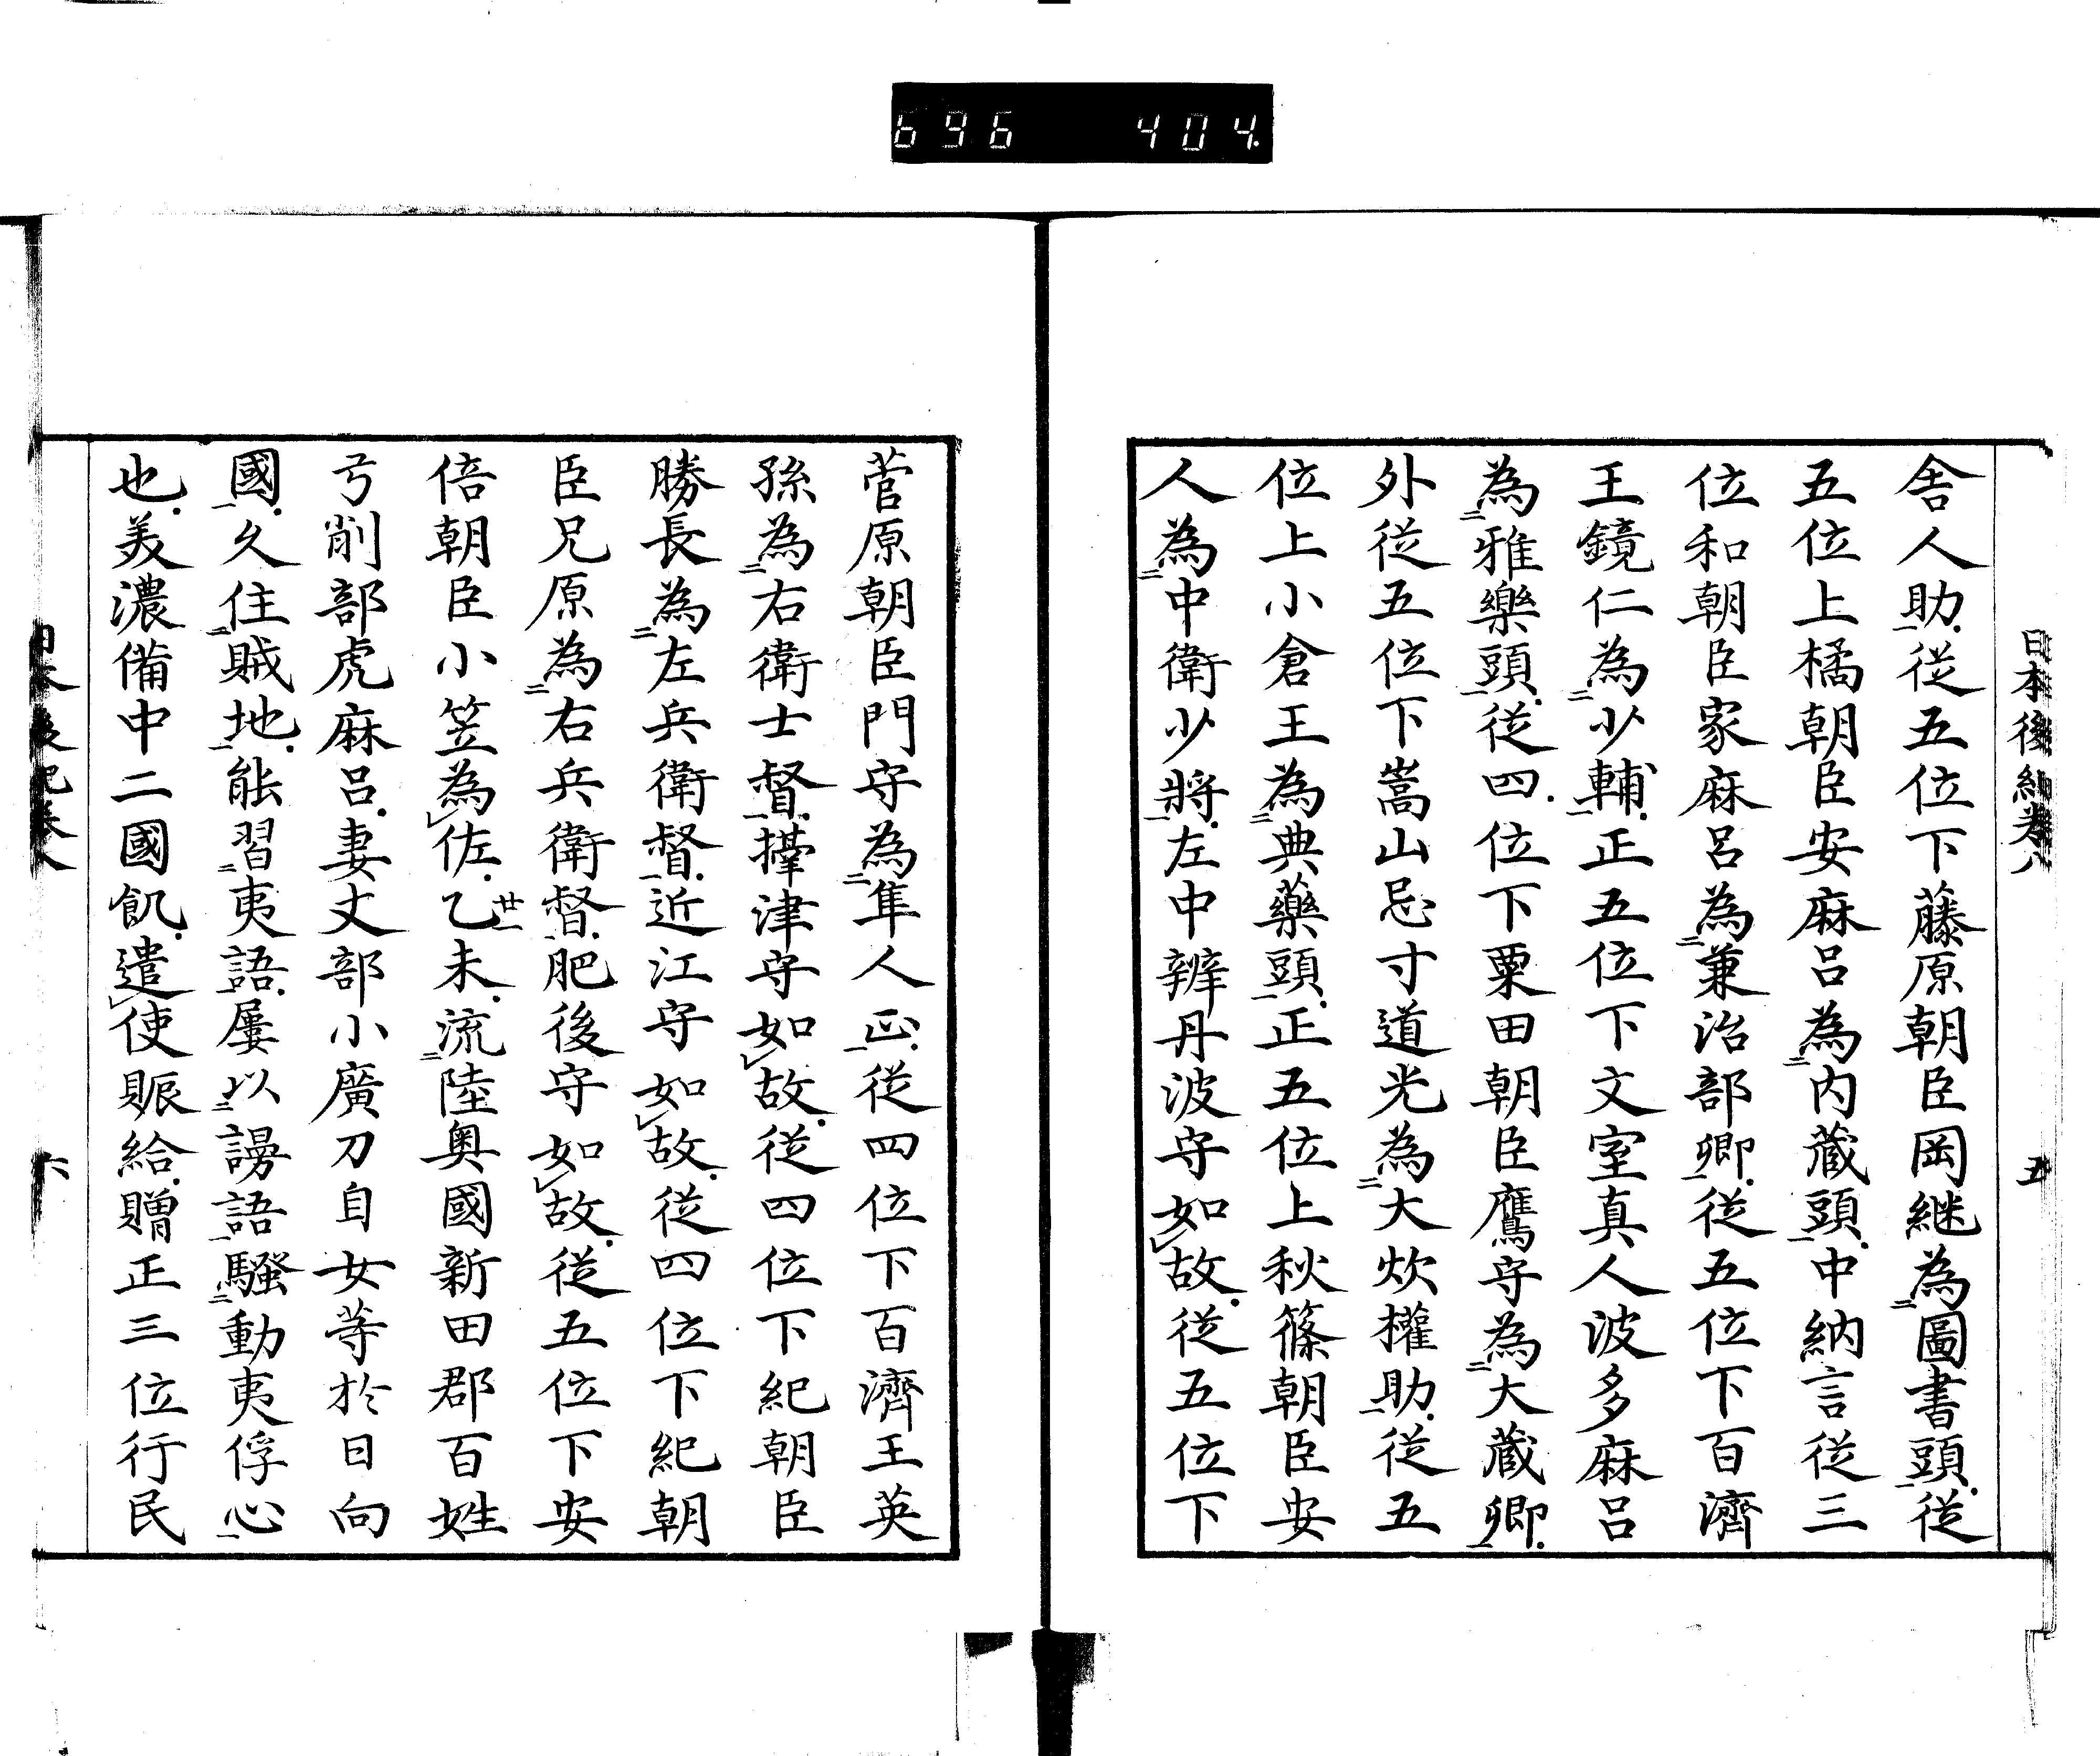 696 404.
日本後紀卷八 五
舍人助。從五位下藤原朝臣岡継為圖書頭。從
五位上橘朝臣安麻呂為内蔵頭。中納言從三
位和朝臣家麻呂為兼治部卿。從五位下百濟
王鏡仁為少輔。正五位下文室真人波多麻呂
為雅樂頭。從四位下粟田朝臣鷹守為大蔵卿。
外從五位下嵩山忌寸道光為大炊權助。從五
位上小倉王為典藥頭。正五位上秋篠朝臣安
人為中衛少將。左中辨丹波守如故。從五位下
菅原朝臣門守為隼人正。從四位下百濟王英
孫為右衛士督。攝津守如故。從四位下紀朝臣
勝長為左兵衛督。近江守如故。從四位下紀朝
臣兄原為右兵衛督。肥後守如故。從五位下安
倍朝臣小笠為佐。乙未。流陸奥國新田郡百姓
廿一
弓削部虎麻呂。妻丈部小廣刀自女等於日向
國。久住賊地。能習夷語。屢以謾語騷動夷俘心
也。美濃備中二國飢。遣使賑給。贈正三位行民
六